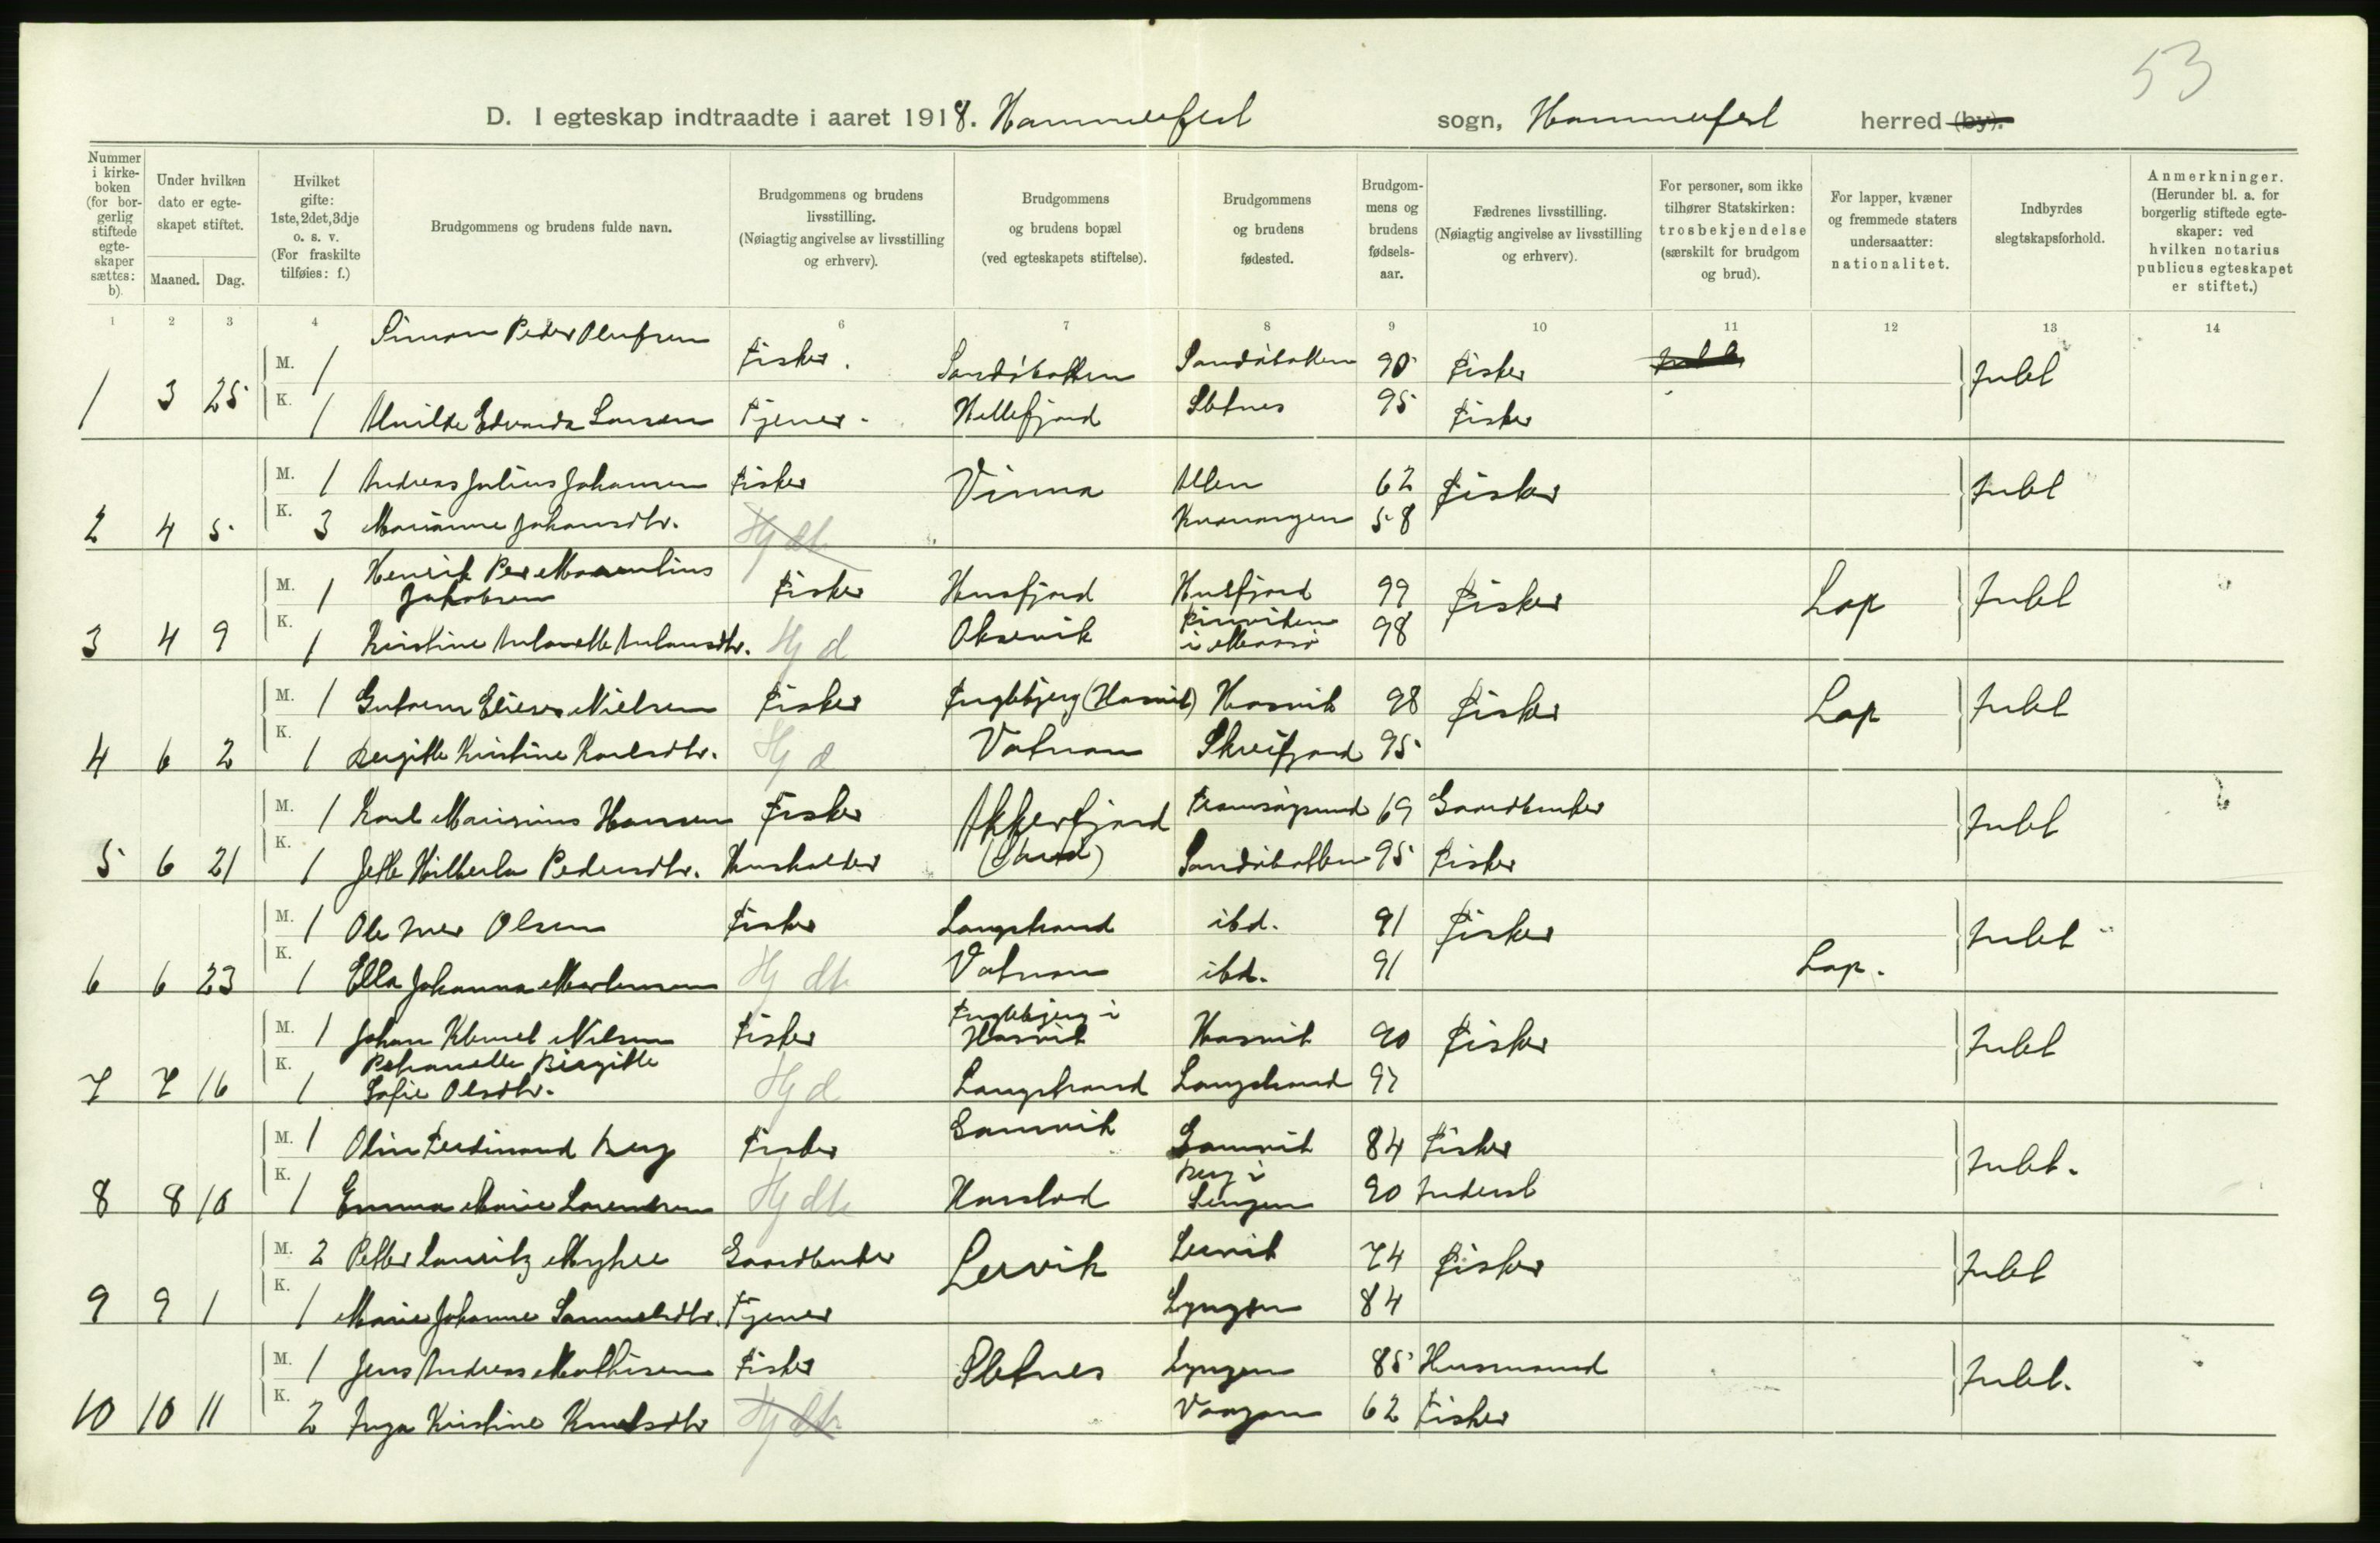 53
D. I egteskap indtraadte i aaret 1918. Hammerfest sogn, Hammerfest herred (by).
Nummer i kirkeboken (for borgerlig stiftede egteskaper sættes: b).
Under hvilken dato er egteskapet stiftet.
Maaned. Dag.
Hvilket gifte: 1ste, 2det, 3dje o. s. v. (For fraskilte tilføies: f.)
Brudgommens og brudens fulde navn.
Brudgommens og brudens livsstilling. (Nøiagtig angivelse av livsstilling og erhverv).
Brudgommens og brudens bopæl (ved egteskapets stiftelse).
Brudgommens og brudens fødested.
Brudgommens og brudens fødselsaar.
Fædrenes livsstilling. (Nøiagtig angivelse av livsstilling og erhverv).
For personer, som ikke tilhører Statskirken: trosbekjendelse (særskilt for brudgom og brud).
For lapper, kvæner og fremmede staters undersaatter: nationalitet.
Indbyrdes slegtskapsforhold.
Anmerkninger. (Herunder bl. a. for borgerlig stiftede egteskaper: ved hvilken notarius publicus egteskapet er stiftet.)
1 2 3 4 6 7 8 9 10 11 12 13 14
M. 1 Simon Peder Olufsen Fisker. Sandøbotten Sandøbotten 90 Fisker Intet
1 3 25 K. 1 Alvilde Edvarda Larsen Tjener. Hellefjord Sletnes 95 Fisker
M. 1 Andreas Julius Johansen Fisker Vinna 62 Fisker Intet
2 4 5 K. 3 Marianne Johansdtr. Hj dt Kvænangen 58
M. 1 Henrik Per Jakobsen Fisker Husfjord Husfjord 99 Fisker Lap Intet
3 4 9 K. 1 Kristine Hj d Oksevik i 98
M. 1 Nielsen Fisker Fuglebjerg (Hasvik) Hasvik 98 Fisker Lap Intet
4 6 2 K. 1 Bergitte Kristine Karlsdtr. Hj d Vatnan Skreifjord 95
M. 1 Karl Hansen Fisker Akkarfjord 69 Gaardbruker Intet
5 6 21 K. 1 Pedersdtr. Husholder Sandøbotten 95 Fisker
M. 1 Ole Iver Olsen Fisker Langstrand ibd. 91 Fisker Intet
6 6 23 K. 1 Ella Johanna Mortensen Hj dt Vatnan ibd. 91 Lap.
M. 1 Johan Klemet Nilsen Fisker Fuglebjerg i Hasvik Hasvik 90 Fisker Intet
7 7 16 K. 1 Birgitte Sofie Olsdtr. Hj d Langstrand Langstrand 97
M. 1 Ferdinand Berg Fisker Gamvik Gamvik 84 Fisker Intet.
8 8 10 K. 1 Emma Marie Lorentsen Hj dt Harstad Berg i 90 Inderst
M. 2 Petter Lauritz Myhre Gaardbruker Lervik Lervik 74 Fisker Intet
9 9 1 K. 1 Marie Johanne Samuelsdtr. Tjener Lyngen 84
M. 1 Jens Andreas Mathisen Fisker Sletnes Lyngen 85 Husmand Intet.
10 10 11 K. 2 Inga Kristine Knutsdtr Hj dt Vaagan 62 Fisker